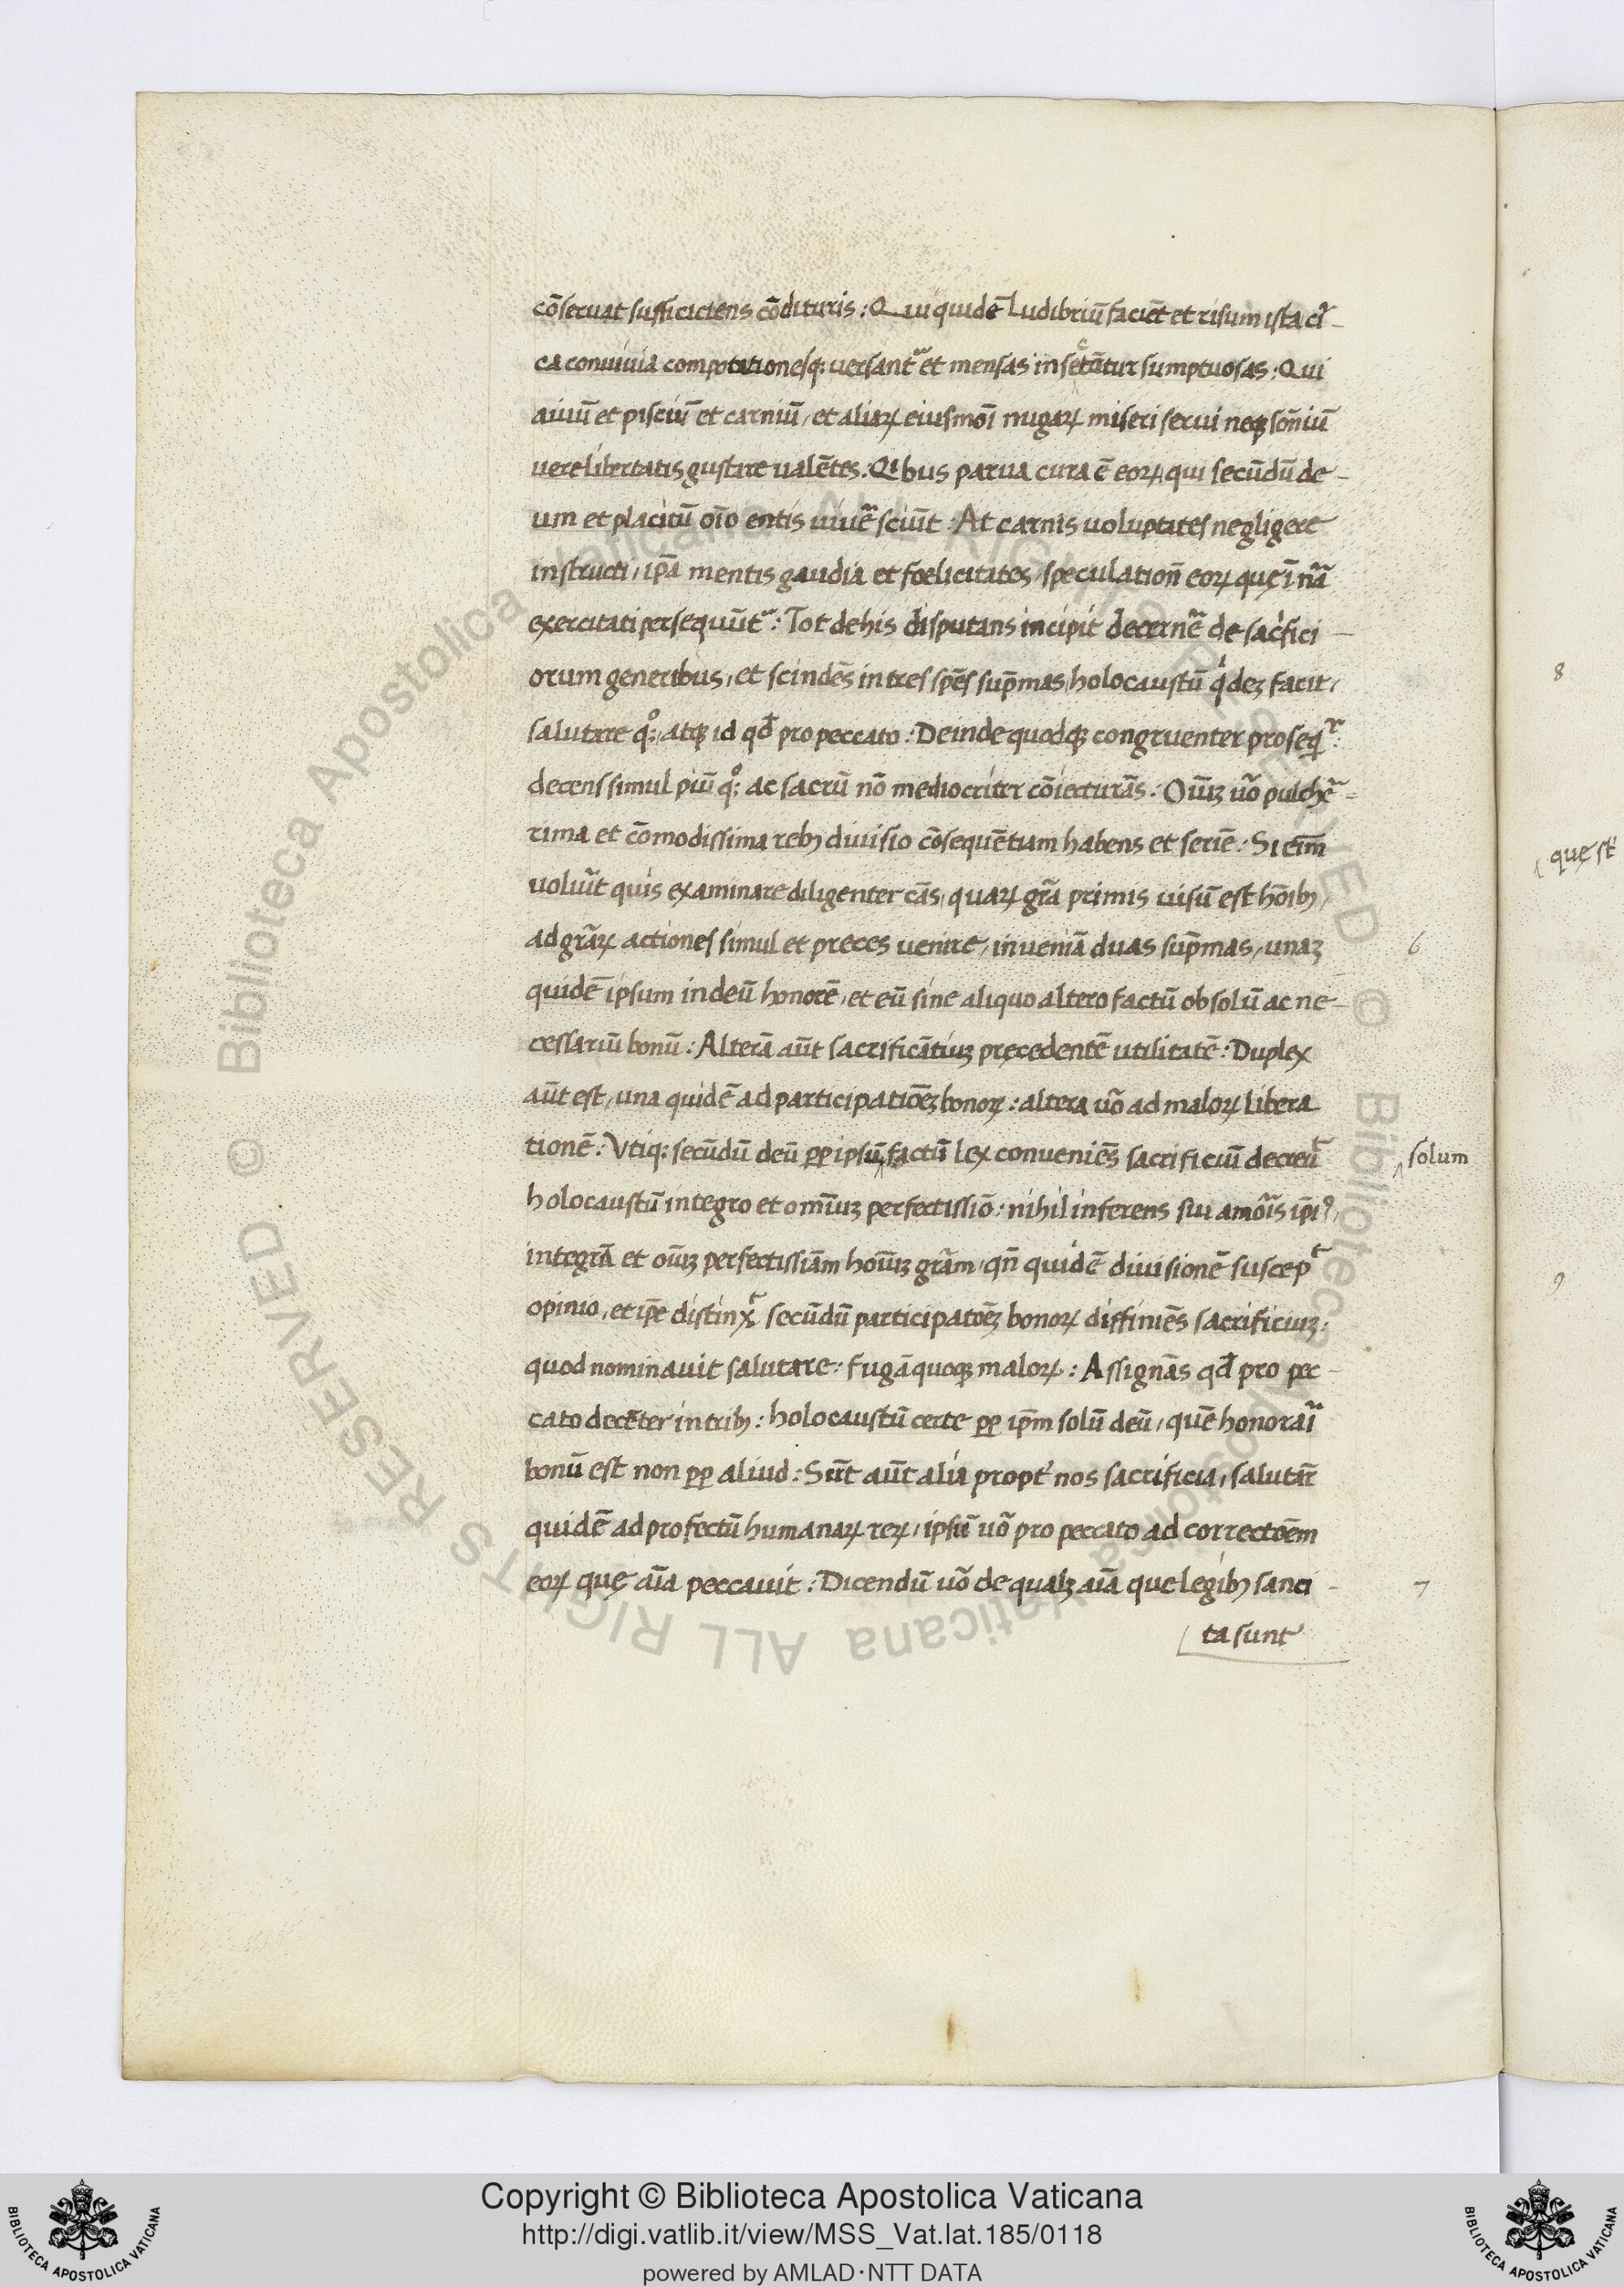 cōseruat sufficiciens cōdituris: Qui quidē Ludibriū faciēt et risum ista cir̄-
ca conuiuia compotationesq; uersant᷑ et mensas insectātur sumptuosas: Qui
auiū et pisciū et carniū, et aliaꝝ eiusmōi nugaꝝ miseri serui neqꝫ sōniū
uere libertatis gustare ualētes: Qibus parua cura ē eoꝝ qui secūdū de-
um et placitū oīo entis uiuē sciūt: At carnis uoluptates negligere
instructi, ip̄a mentis gaudia et fœlicitates, speculation̄ eoꝝ quę ī nā
exercitati persequūt᷑: Tot de his disputans incipit decernē de sac̍fici-
orum generibus, et scindēs in tres sp̄es sup̄mas, holocaustū q̍dez facit,
salutare q°;, atqꝫ id qđ pro peccato: Deinde quodqꝫ congruenter proseq᷑:
decens simul piū q°; ac sacrū nō mediocriter cōiecturās: Oīuꝫ uō pulchē-
rima et cōmodissima rebꝫ diuisio cōsequētiam habens et seriē: Si eīm
uoluīt quis examinare diligenter cās, quaꝝ grā primis uisū est hōibꝫ,
ad grāꝝ actiones simul et preces uenire, inueniā duas sup̄mas, unaꝫ
quidē ipsum in deū honorē, et eū sine aliquo altero factū ob solū ac ne-
cessariū bonū: Alterā aūt sacrificātiuꝫ pręcedentē utilitatē: Duplex
aūt est, una quidē ad participatiōeꝫ bonoꝝ: altera uō ad maloꝝ libera
tionē: Vtiq; secūdū deū ꝓp ipsū factū lex conueniēs sacrificiū decreuͭ
solum
holocaustū integro et omīuꝫ perfectissiō: nihil inferens sui amōis ip̄iꝰ,
integrā et oīuꝫ perfectissiām hoīuꝫ grām, qn̄ quidē diuisionē suscepͭ
opinio, et ip̄e distinxͭ secūdū participatōeꝫ bonoꝝ diffiniēs sacrificiuꝫ:
quod nominauit salutare: Fugā quoqꝫ maloꝝ: Assignās qđ pro pec-
cato decēter in tribꝫ: holocaustū certe ꝓp ip̄m solū deū, quē honoraī
bonū est non ꝓp aliud: Sūt aūt alia propt̍ nos sacrificia, salutār
quidē ad profectū humanaꝝ reꝝ, ipsū uō pro peccato ad correctōem
eoꝝ quę aīa peccauit: Dicendū uō de qualꝫ aīa que legibꝫ sanci-
ta sunt
6
7
8
quę st
9
© Biblioteca Apostolica Vaticana ALL RIGHTS RESERVED © Biblioteca Apostolica Vaticana ALL RIGHTS RESERVED
Copyright © Biblioteca Apostolica Vaticana
http://digi.vatlib.it/view/MSS_Vat.lat.185/0118
powered by AMLAD·NTT DATA
BIBLIOTECA APOSTOLICA VATICANA
BIBLIOTECA APOSTOLICA VATICANA